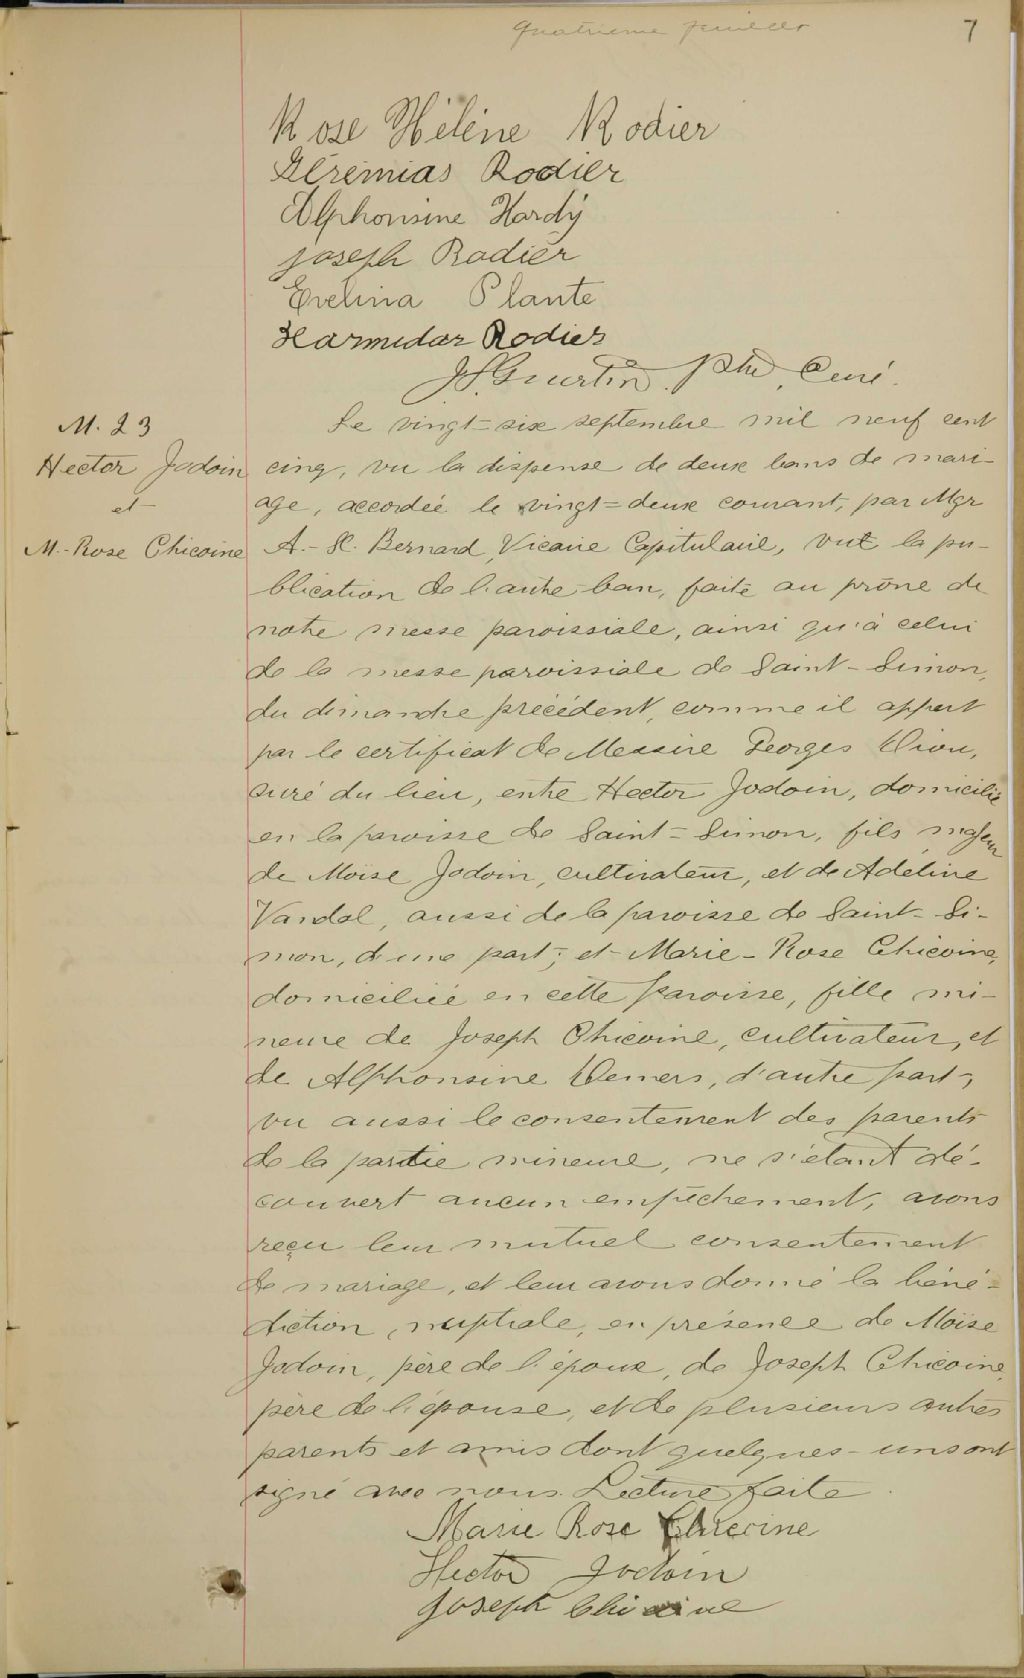 quatrième feuillet
7
Rose Hélène Rodier
Gérémias Rodier
Alphonsine Hardy
Joseph Rodier
Evelina Plante
Harmidas Rodier
Ptre, Curé.
M. 23
Hector Jodoin
et
M.-Rose Chicoine
Le vingt-six septembre mil neuf cent
cinq, vu la dispense de deux bans de mari-
age, accordée le vingt-deux courant, par Mgr
A.-X. Bernard, Vicaire Capitulaire, vu la pu-
blication de l'autre ban, faite au prône de
notre messe paroissiale, ainsi qu'à celui
de la messe paroissiale de Saint-Simon,
du dimanche précédent, comme il appert
par le certificat de Messire Georges Dion,
curé du lieu, entre Hector Jodoin, domicilié
en la paroisse de Saint-Simon, fils majeur
de Moïse Jodoin, cultivateur, et de Adéline
Vandal, aussi de la paroisse de Saint-Si-
mon, d'une part; et Marie-Rose Chicoine,
domiciliée en cette paroisse, fille mi-
neure de Joseph Chicoine, cultivateur, et
de Alphonsine Demers, d'autre part,
vu aussi le consentement des parents
de la partie mineure, ne s'étant dé-
couvert aucun empêchement, avons
reçu leur mutuel consentement
de mariage, et leur avons donné la béné-
diction nuptiale, en présence de Moïse
Jodoin, père de l'époux, de Joseph Chicoine,
père de l'épouse, et de plusieurs autres
parents et amis dont quelques-uns ont
signé avec nous. Lecture faite.
Marie Rose Chicoine
Hector Jodoin
Joseph Chicoine